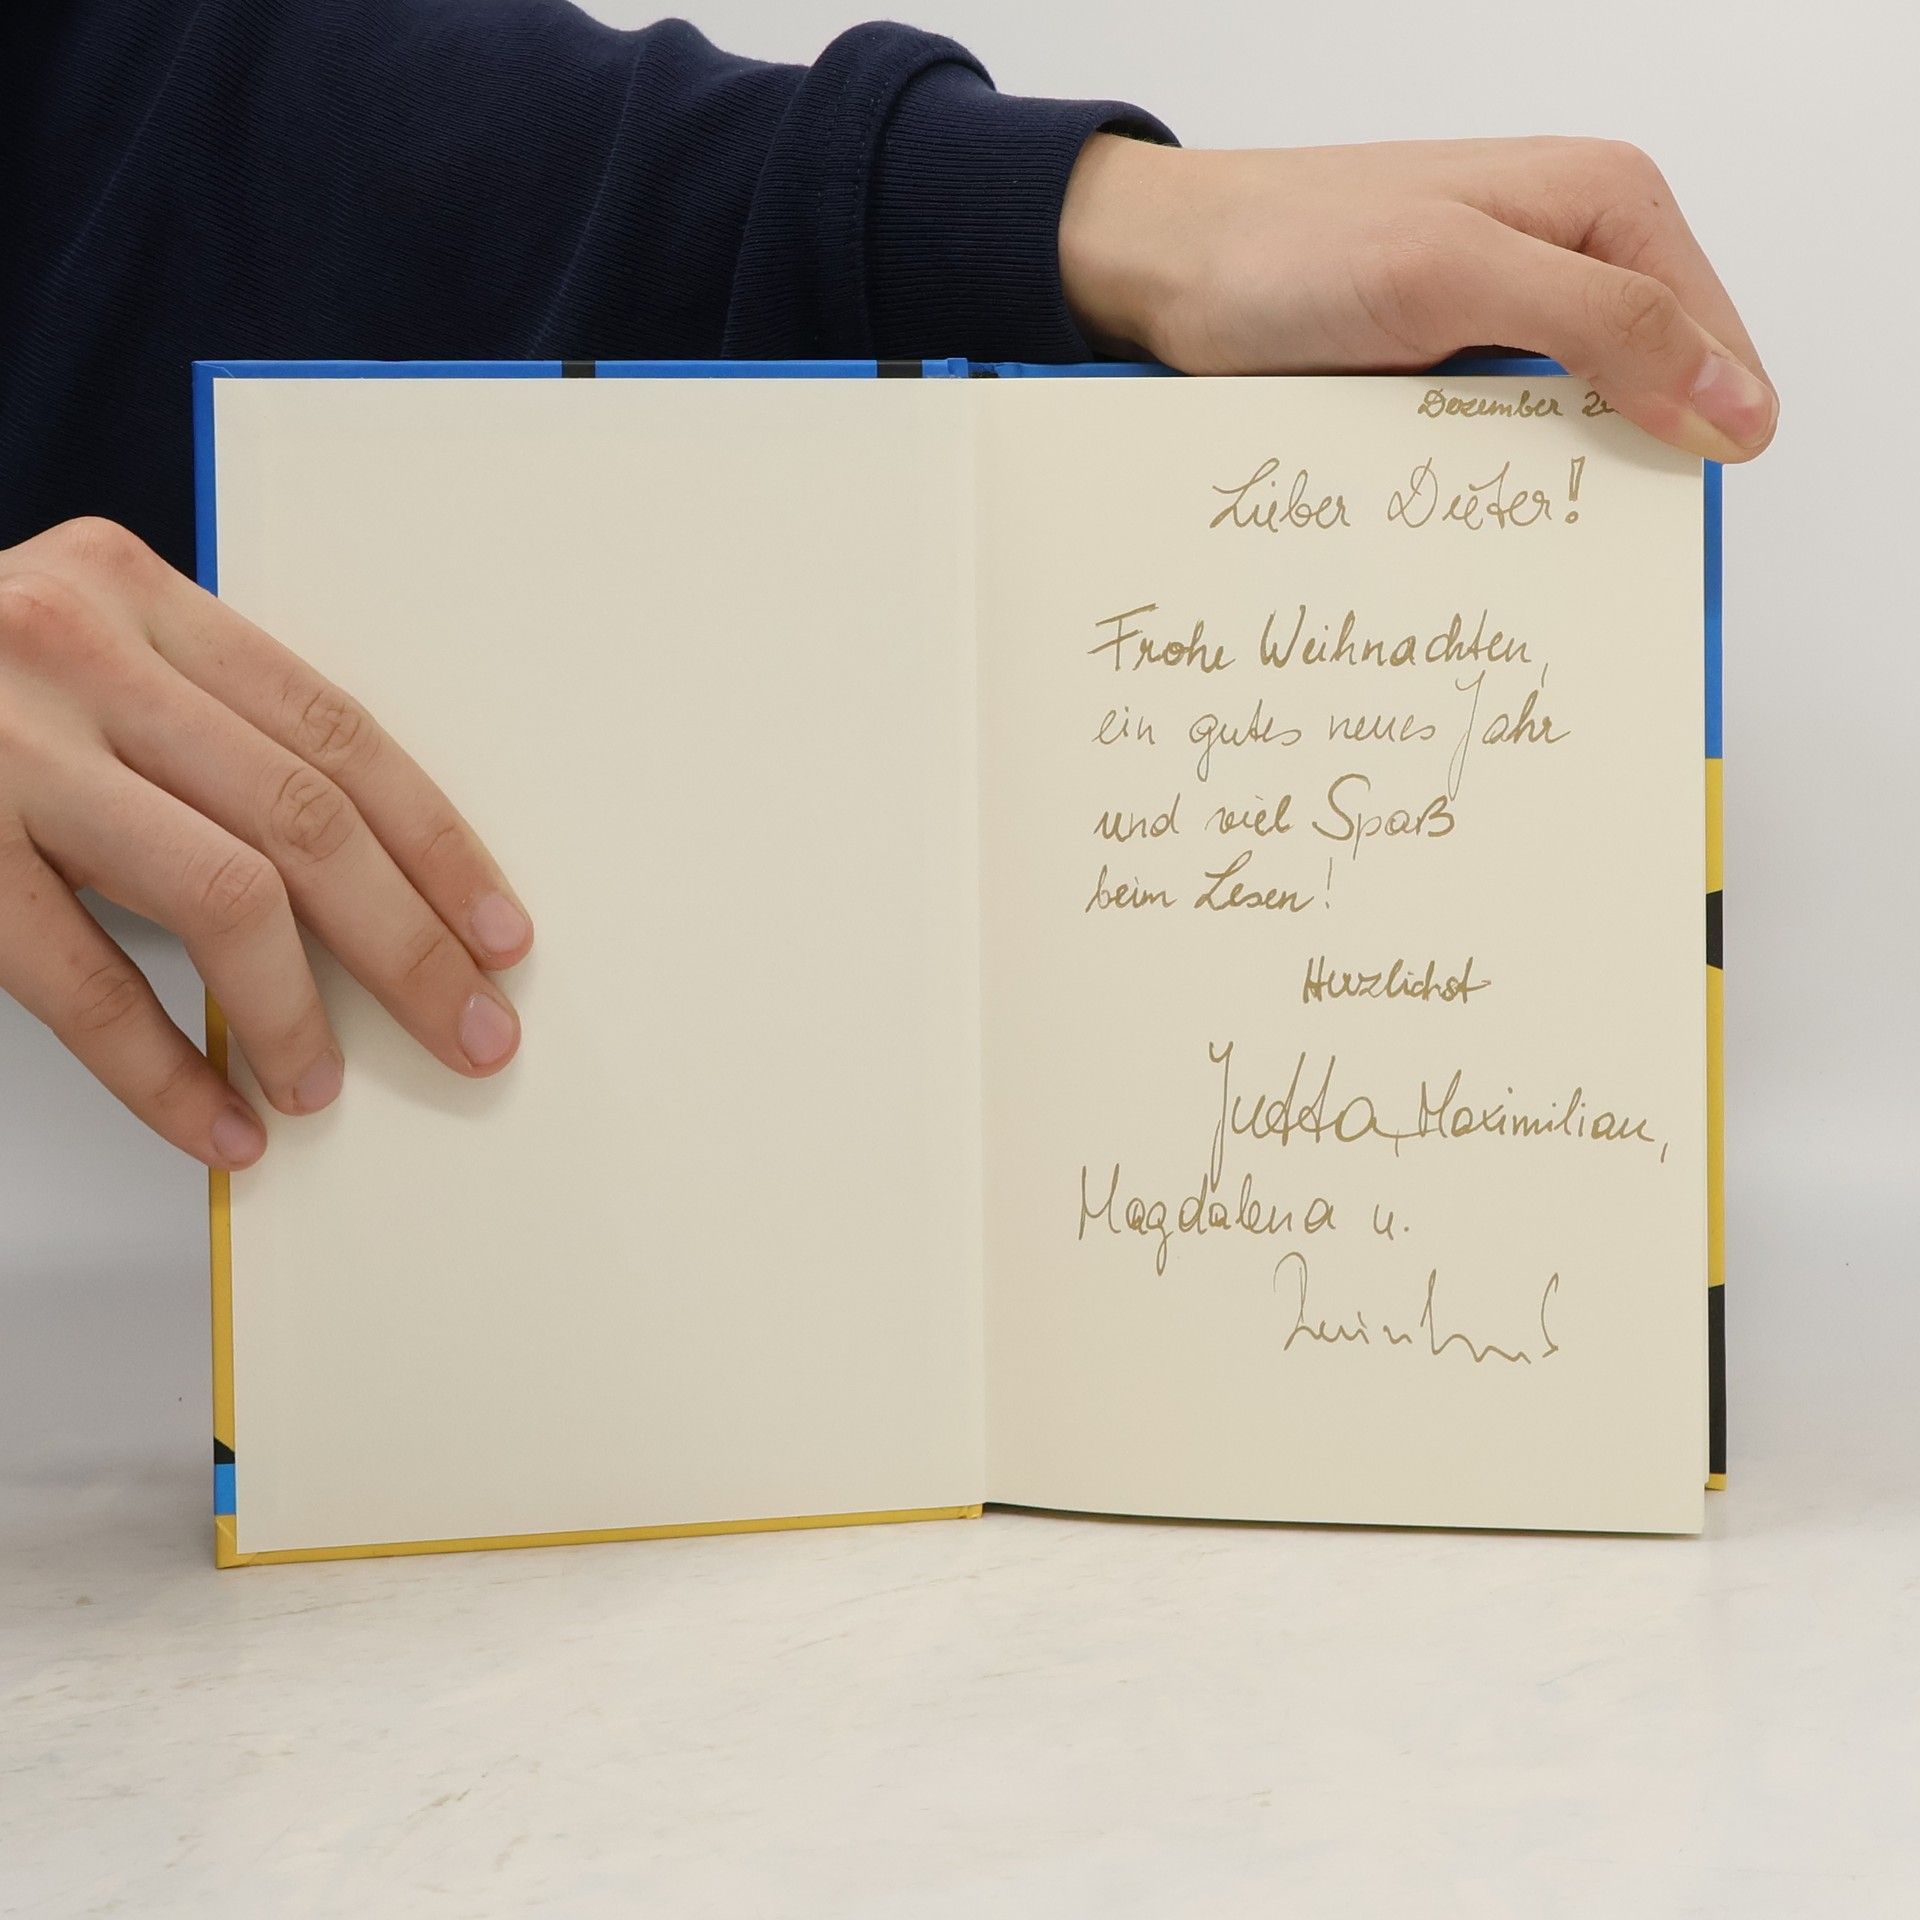 Dezember
Lieber Dieter!
Frohe Weihnachten,
ein gutes neues Jahr
und viel Spaß
beim Lesen!
Herzlichst
Jutta, Maximilian,
Magdalena u.